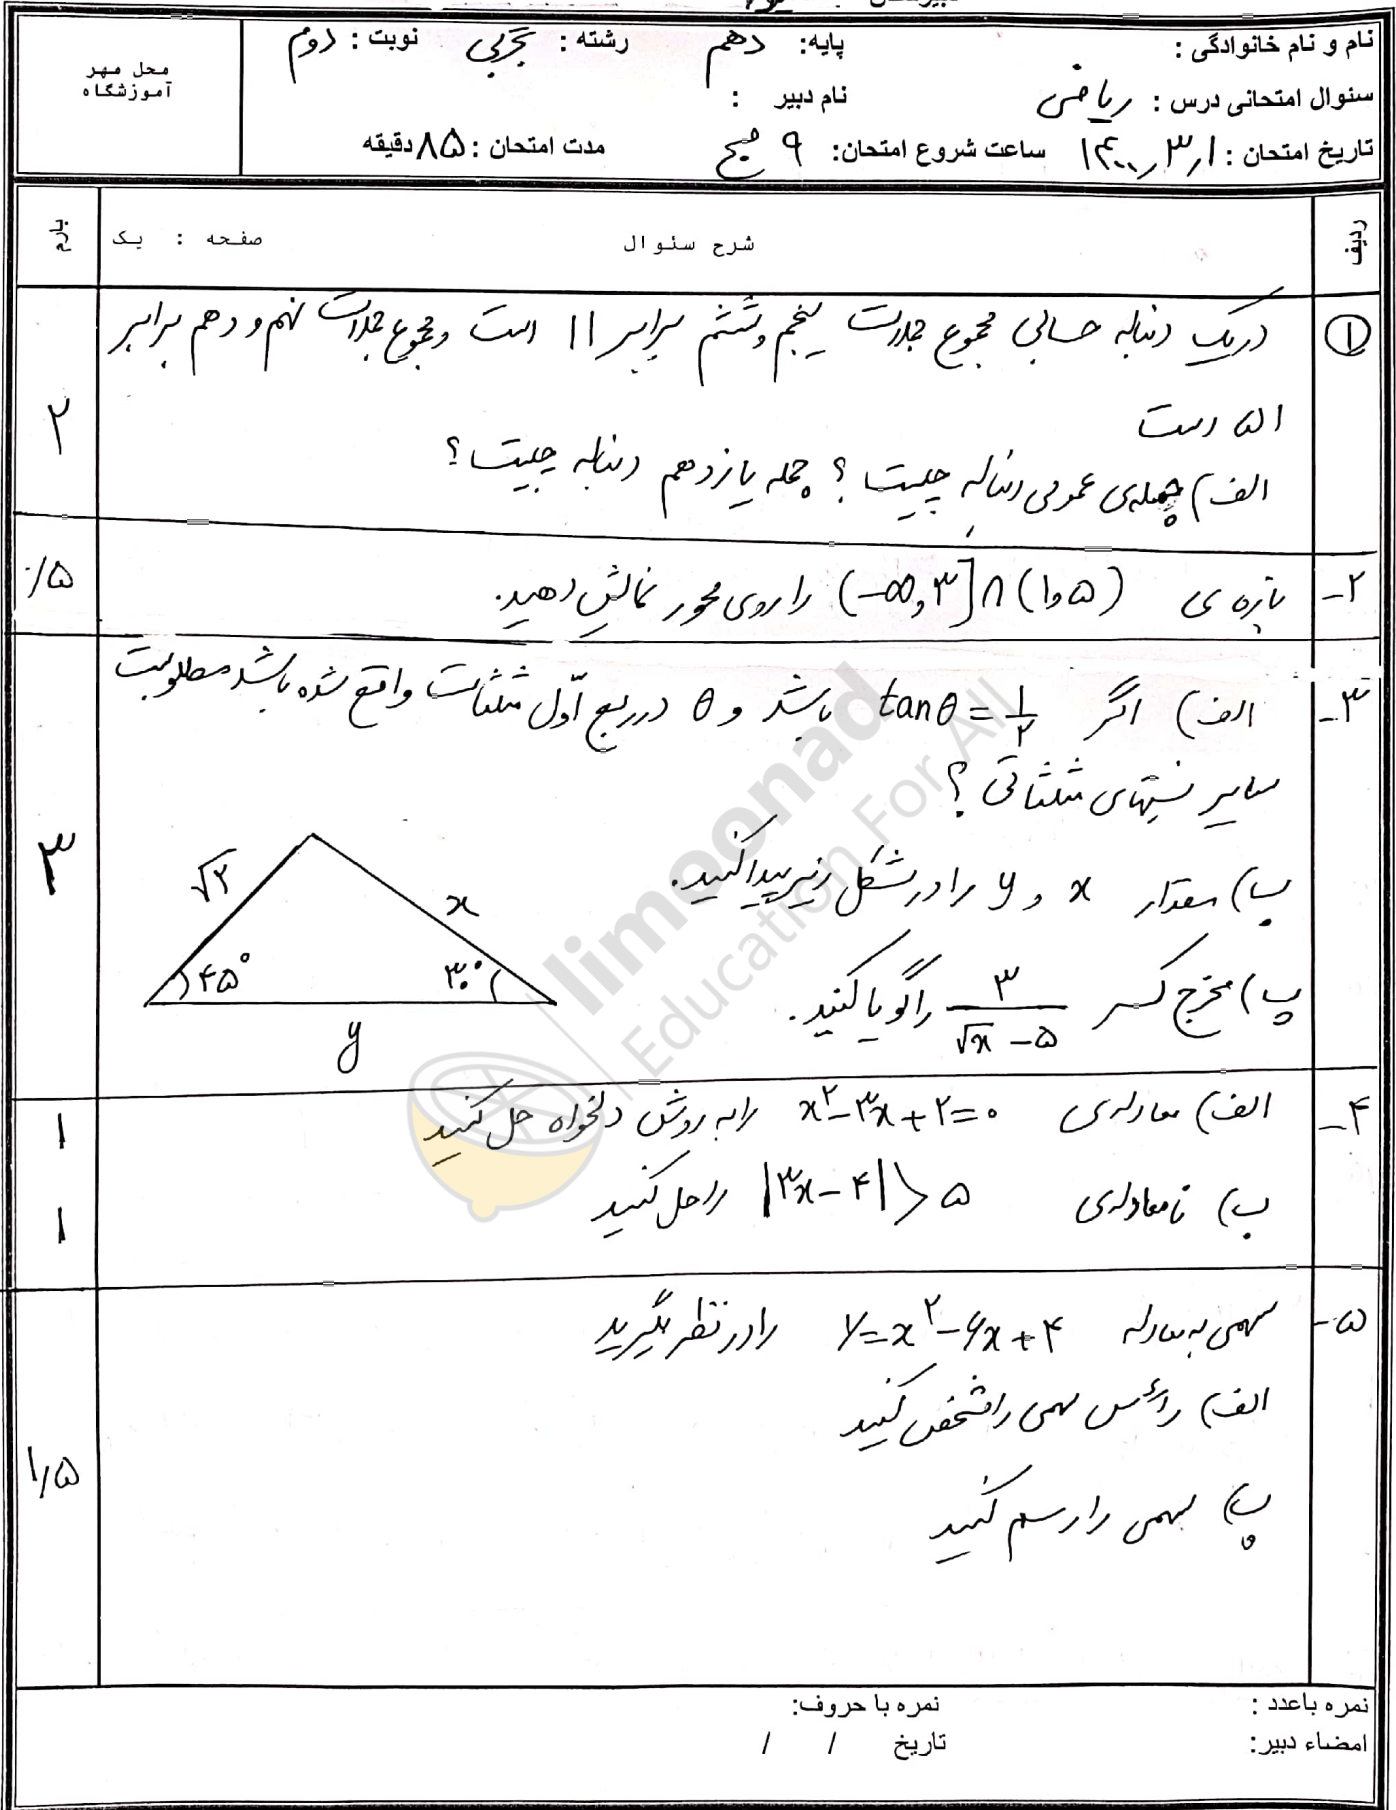 نام و نام خانوادگی :
پایه: دهم
رشته : تجربی
نوبت : دوم
محل مهر
آموزشگاه
سئوال امتحانی درس : ریاضی
نام دبیر :
تاریخ امتحان : ۱۴۰۰٫۳٫۱
ساعت شروع امتحان: ۹ صبح
مدت امتحان : ۸۵ دقیقه
ردیف
شرح سئوال
صفحه : یک
بارم
① در یک دنباله حسابی مجموع جملات پنجم و ششم برابر ۱۱ است و مجموع جملات نهم و دهم برابر
۵۱ است
الف) جمله‌ی عمومی دنباله چیست ؟ جمله یازدهم دنباله چیست ؟
۲
۲- بازه ی (-∞,۳]∩(۱,۵) را روی محور نمایش دهید.
۰/۵
۳- الف) اگر tanθ = ۱/۲ باشد و θ در ربع اوّل مثلثات واقع شده باشد مطلوبست
سایر نسبتهای مثلثاتی ؟
ب) مقدار x و y را در شکل زیر پیدا کنید.
پ) مخرج کسر ۳/(√x - ۵) را گویا کنید.
۳
√۲
x
۴۵°
۳۰°
y
۴- الف) معادله‌ی x²-۳x+۲=۰ را به روش دلخواه حل کنید
۱
ب) نامعادله‌ی |۳x-۴|>۵ را حل کنید
۱
۵- سهمی به معادله y=x²-۶x+۴ را در نظر بگیرید
الف) رأس سهمی را مشخص کنید
پ) سهمی را رسم کنید
۱/۵
نمره باعدد :
نمره با حروف:
امضاء دبیر:
تاریخ / /
limoonad
Education For All